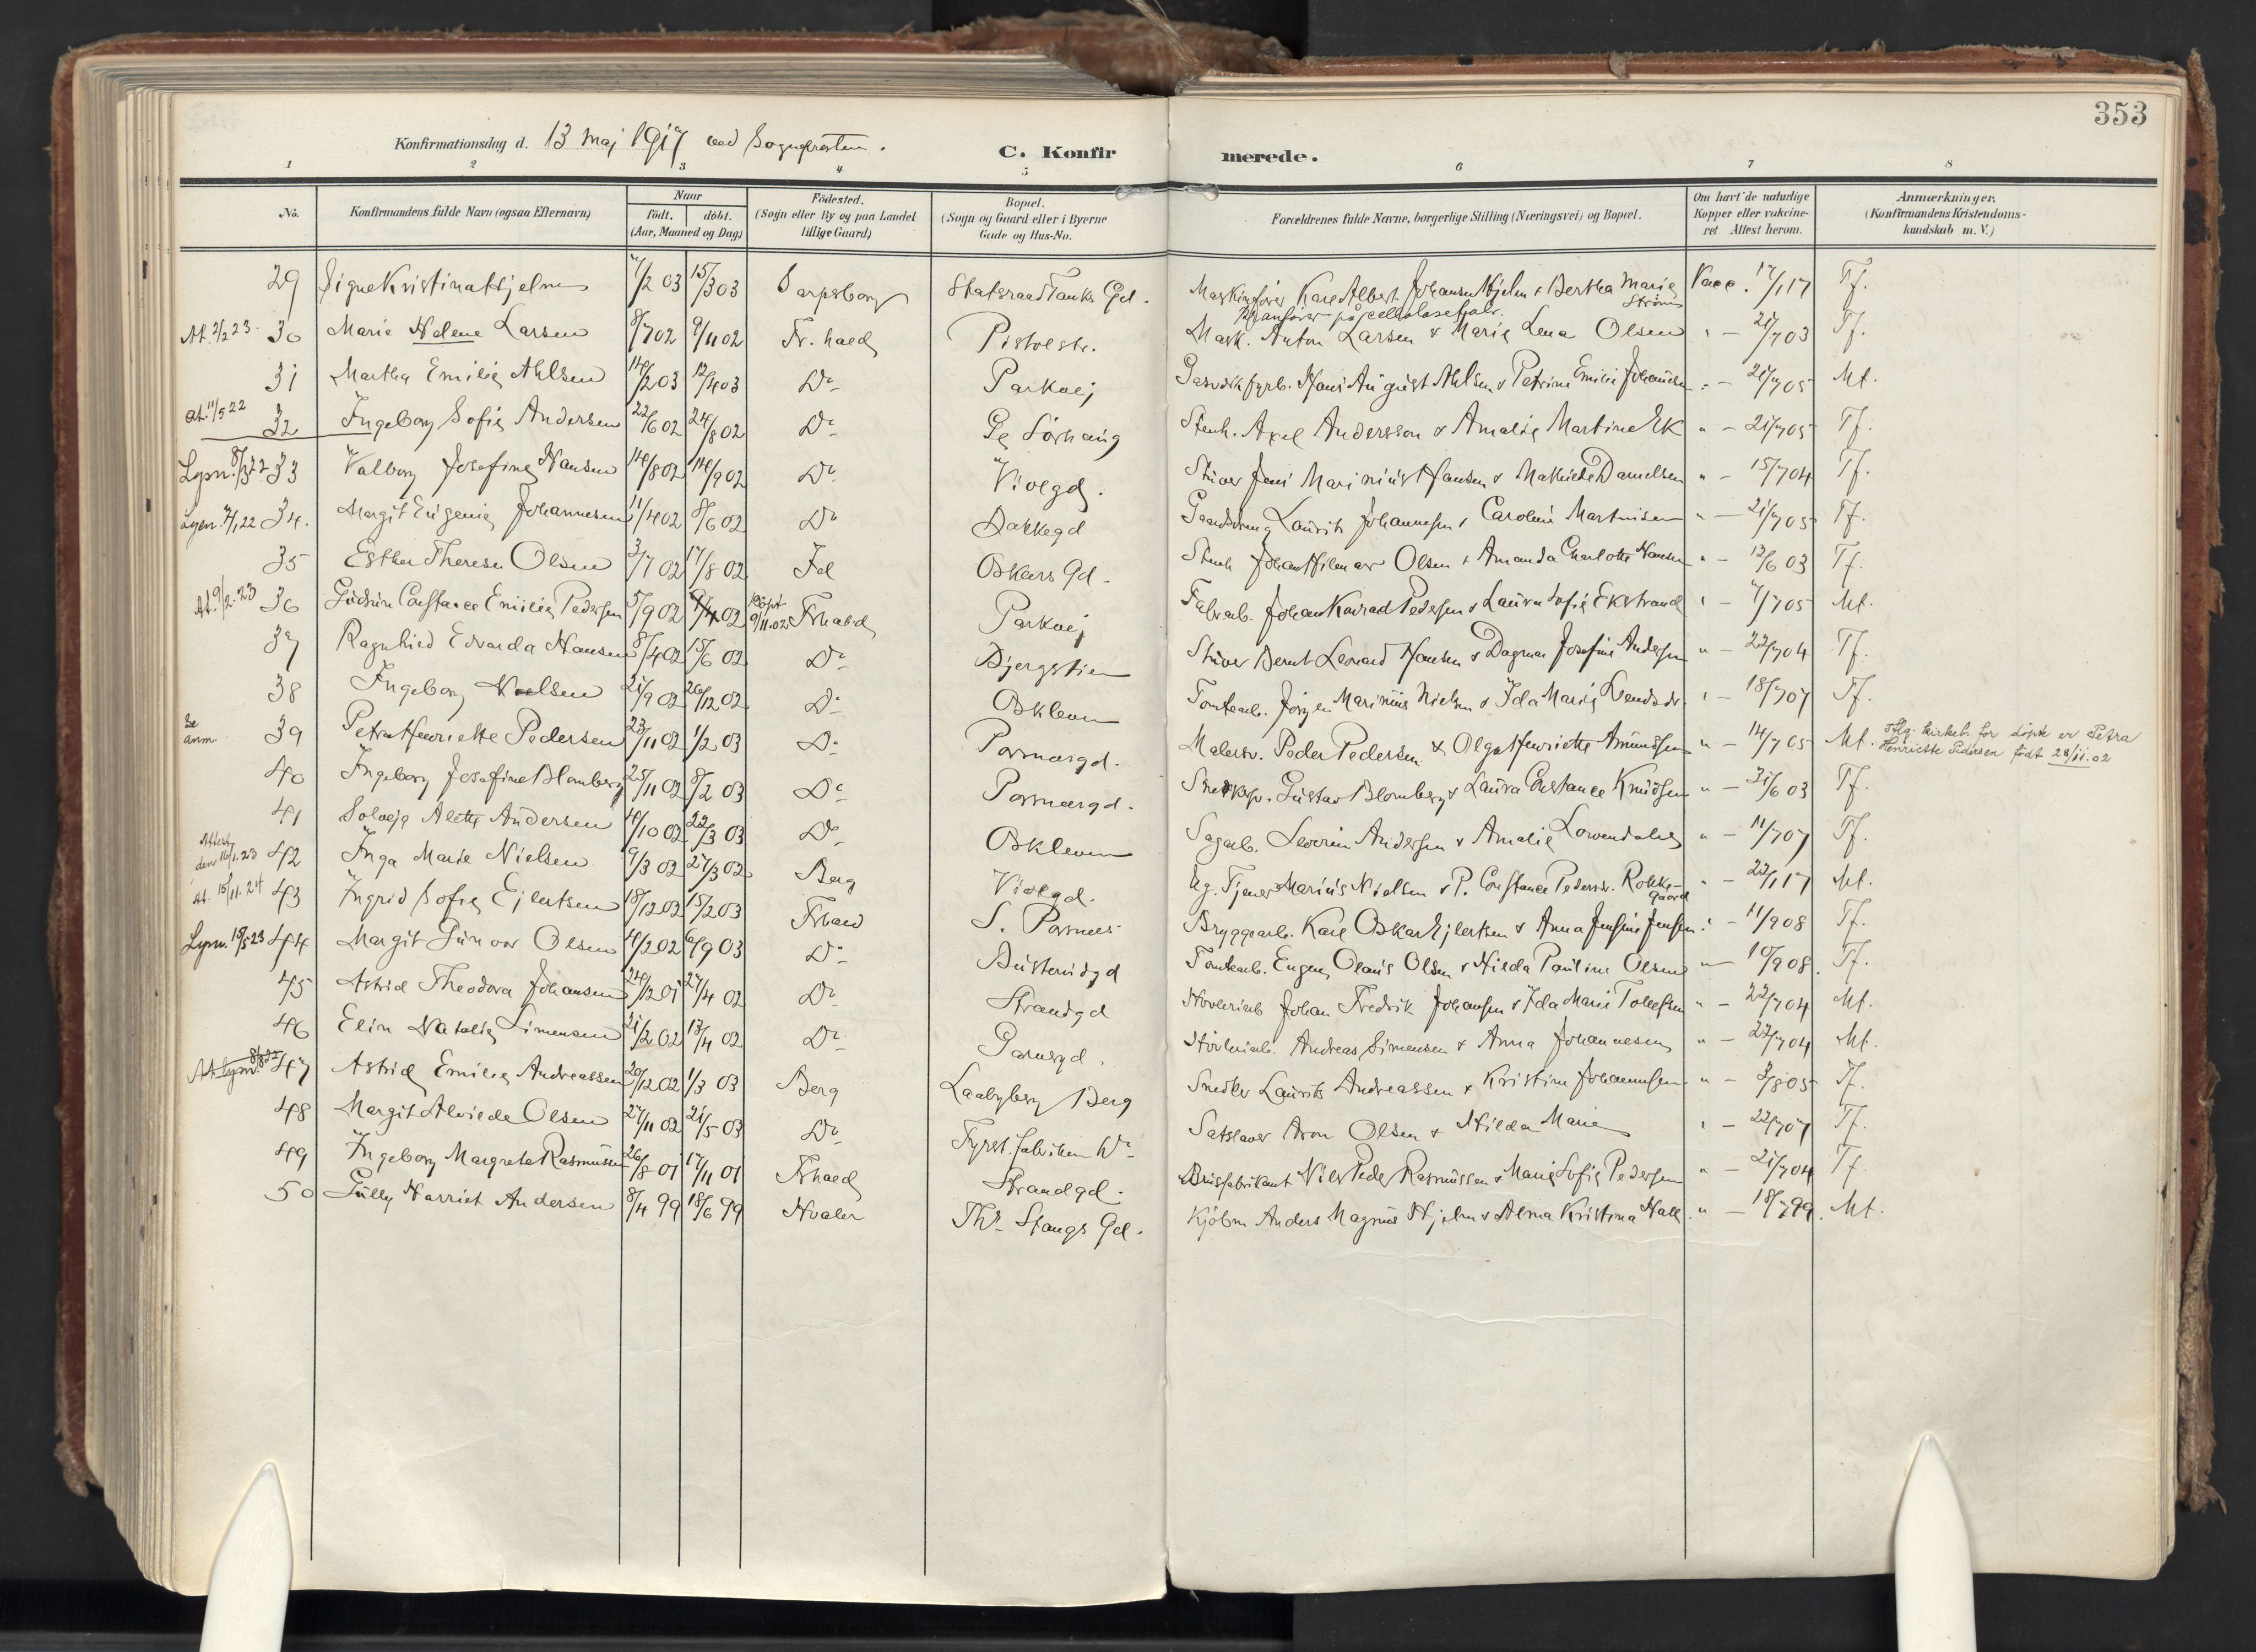 353
Konfirmationsdag d. 13 maj 1917 ved Sognepresten.
C. Konfirmerede.
1 2 3 4 5 6 7 8
No. Konfirmandens fulde Navn (ogsaa Efternavn) Naar født. døbt. (Aar, Maaned og Dag) Födested. (Sogn eller By og paa Landet tillige Gaard) Bopæl. (Sogn og Gaard eller i Byerne Gade og Hus-No. Forældrenes fulde Navne, borgerlige Stilling (Næringsvei) og Bopæl. Om havt de naturlige Kopper eller vakcineret Attest herom. Anmærkninger. (Konfirmandens Kristendomskundskab m. V.)
29 Signe Kristina Hjelm 7/2 03 15/3 03 Sarpsborg Statsraad Tanks Gd. Maskinfører Karl Albert Johansen Hjelm & Bertha Marie Strøm Vacc. 17/1 17 Tf.
Kranfører på cellulosefabr.
At. 2/2 23. 30 Marie Helene Larsen 8/7 02 9/11 02 Fr. hald Pistolstr. Mask. Anton Larsen & Marie Lena Olsen " - 21/7 03 Tf.
31 Martha Emilie Ahlsen 14/2 03 12/4 03 Do Parkvej Gasverkfyrb. Hans August Ahlsen & Petrine Emilie Johansen " - 21/7 05 Mf.
At. 11/5 22 32 Ingeborg Sofie Andersen 22/6 02 24/8 02 Do Gl. Sørhaug Stenh. Axel Andersson & Amalie Martine Ek " - 21/7 05 Tf.
Lysn. 8/3 22 33 Valborg Josefine Hansen 14/8 02 14/9 02 Do Violgd. Stuer Jens Marinius Hansen & Mathilde Danielsen " - 15/7 04 Tf.
Lysn. 7/1 22 34. Margit Eugenie Johannesen 11/4 02 8/6 02 Do Bakkegd Gaardsdreng Laurits Johannesen & Caroline Martinisen " - 21/7 05 Tf.
35 Esther Therese Olsen 3/7 02 17/8 02 Id Oskars Gd. Stenh Johan Hilmar Olsen & Amanda Charlotte Hansen " - 12/6 03 Tf.
At. 9/2. 23 36 Gudrun Constance Emilie Pedersen 5/9 02 døpt 9/11.02 Frhald Parkvej Fabrarb. Johan Konrad Pedersen & Laura Sofie Ekstrand " - 7/7 05 Mf.
37 Ragnhild Edvarda Hansen 8/4 02 15/6 02 Do Bjergstien Stuer Bernt Leonard Hansen & Dagmar Josefine Andersen " - 22/7 04 Tf.
38 Ingeborg Nielsen 21/9 02 26/12 02 Do Oskleven Tomtearb. Jørgen Marinius Nielsen & Ida Marie " - 18/7 07 Tf.
Se anm. 39 Petra Henriette Pedersen 23/11 02 1/2 03 Do Porsnæsgd. Malersv. Peder Pedersen & Olga Henriette Amundsen " - 14/7 05 Mf. Flg. kirkeb. for døpte er Petra Henriette Pedersen født 28/11.02
40 Ingeborg Josefine Blomberg 25/11 02 8/2 03 Do Porsnæsgd. Snedkersv. Gustav Blomberg & Laura Constance Knudsen " - 31/6 03 Tf.
41 Solvejg Alette Andersen 4/10 02 22/3 03 Do Oskleven Sagarb. Severin Andersen & Amalie Lövendahl " - 11/7 07 Tf.
Attest den 16/1. 23 42 Inga Marie Nielsen 9/3 02 27/3 02 Berg Violgd. Marius Nielsen & P. Constance Pedersdr. Rokke-Gaard " - 22/1 17 Mf.
At. 15/11. 24 43 Ingrid Sofie Ejlertsen 18/12 02 15/2 03 Frhald S. Porsnes Bryggearb. Karl Oskar Ejlertsen & Anna Jensine Jensen " 11/9 08 Tf.
Lysn. 15/5 23 44 Margit Gunvor Olsen 4/2 02 6/9 03 Do Busterudgd Tomtearb. Eugen Olaus Olsen & Hilda Pauline Olsen " - 10/9 08. Tf.
45 Astrid Theodora Johansen 24/12 01 27/4 02 Do Strandgd Høvleriarb Johan Fredrik Johansen & Ida Marie Tollefsen " - 22/7 04 Mf.
46 Elin Natalie Simensen 21/2 02 13/4 02 Do Garvergd. Høvleriarb. Andreas Simensen & Anna Johannesen " - 22/7 04 Mf.
At. lysn. 8/8 22 47 Astrid Emilie Andreassen 20/12 02 1/3 03 Berg Laabyberg Berg Snedker Laurits Andreassen & Kristine Johannesen " - 3/8 05 Tf.
48 Margit Alvilde Olsen 27/11 02 21/5 03 Do Fyrst. fabriken Do Satslaver Aron Olsen & Hilda Marie " - 22/7 07 Tf.
49 Ingeborg Margrete Rasmussen 26/8 01 17/11 01 Frhald Strandgd. Brusfabrikant Niels Peder Rasmussen & Marie Sofie Pedersen " - 21/7 04 Tf.
50 Gully Harriet Andersen 8/4 99 18/6 99 Hvaler Ths. Stangs Gd. Kjøbm Anders Magnus Hjelm & Alma Kristina Hall " - 18/7 99. Mf.